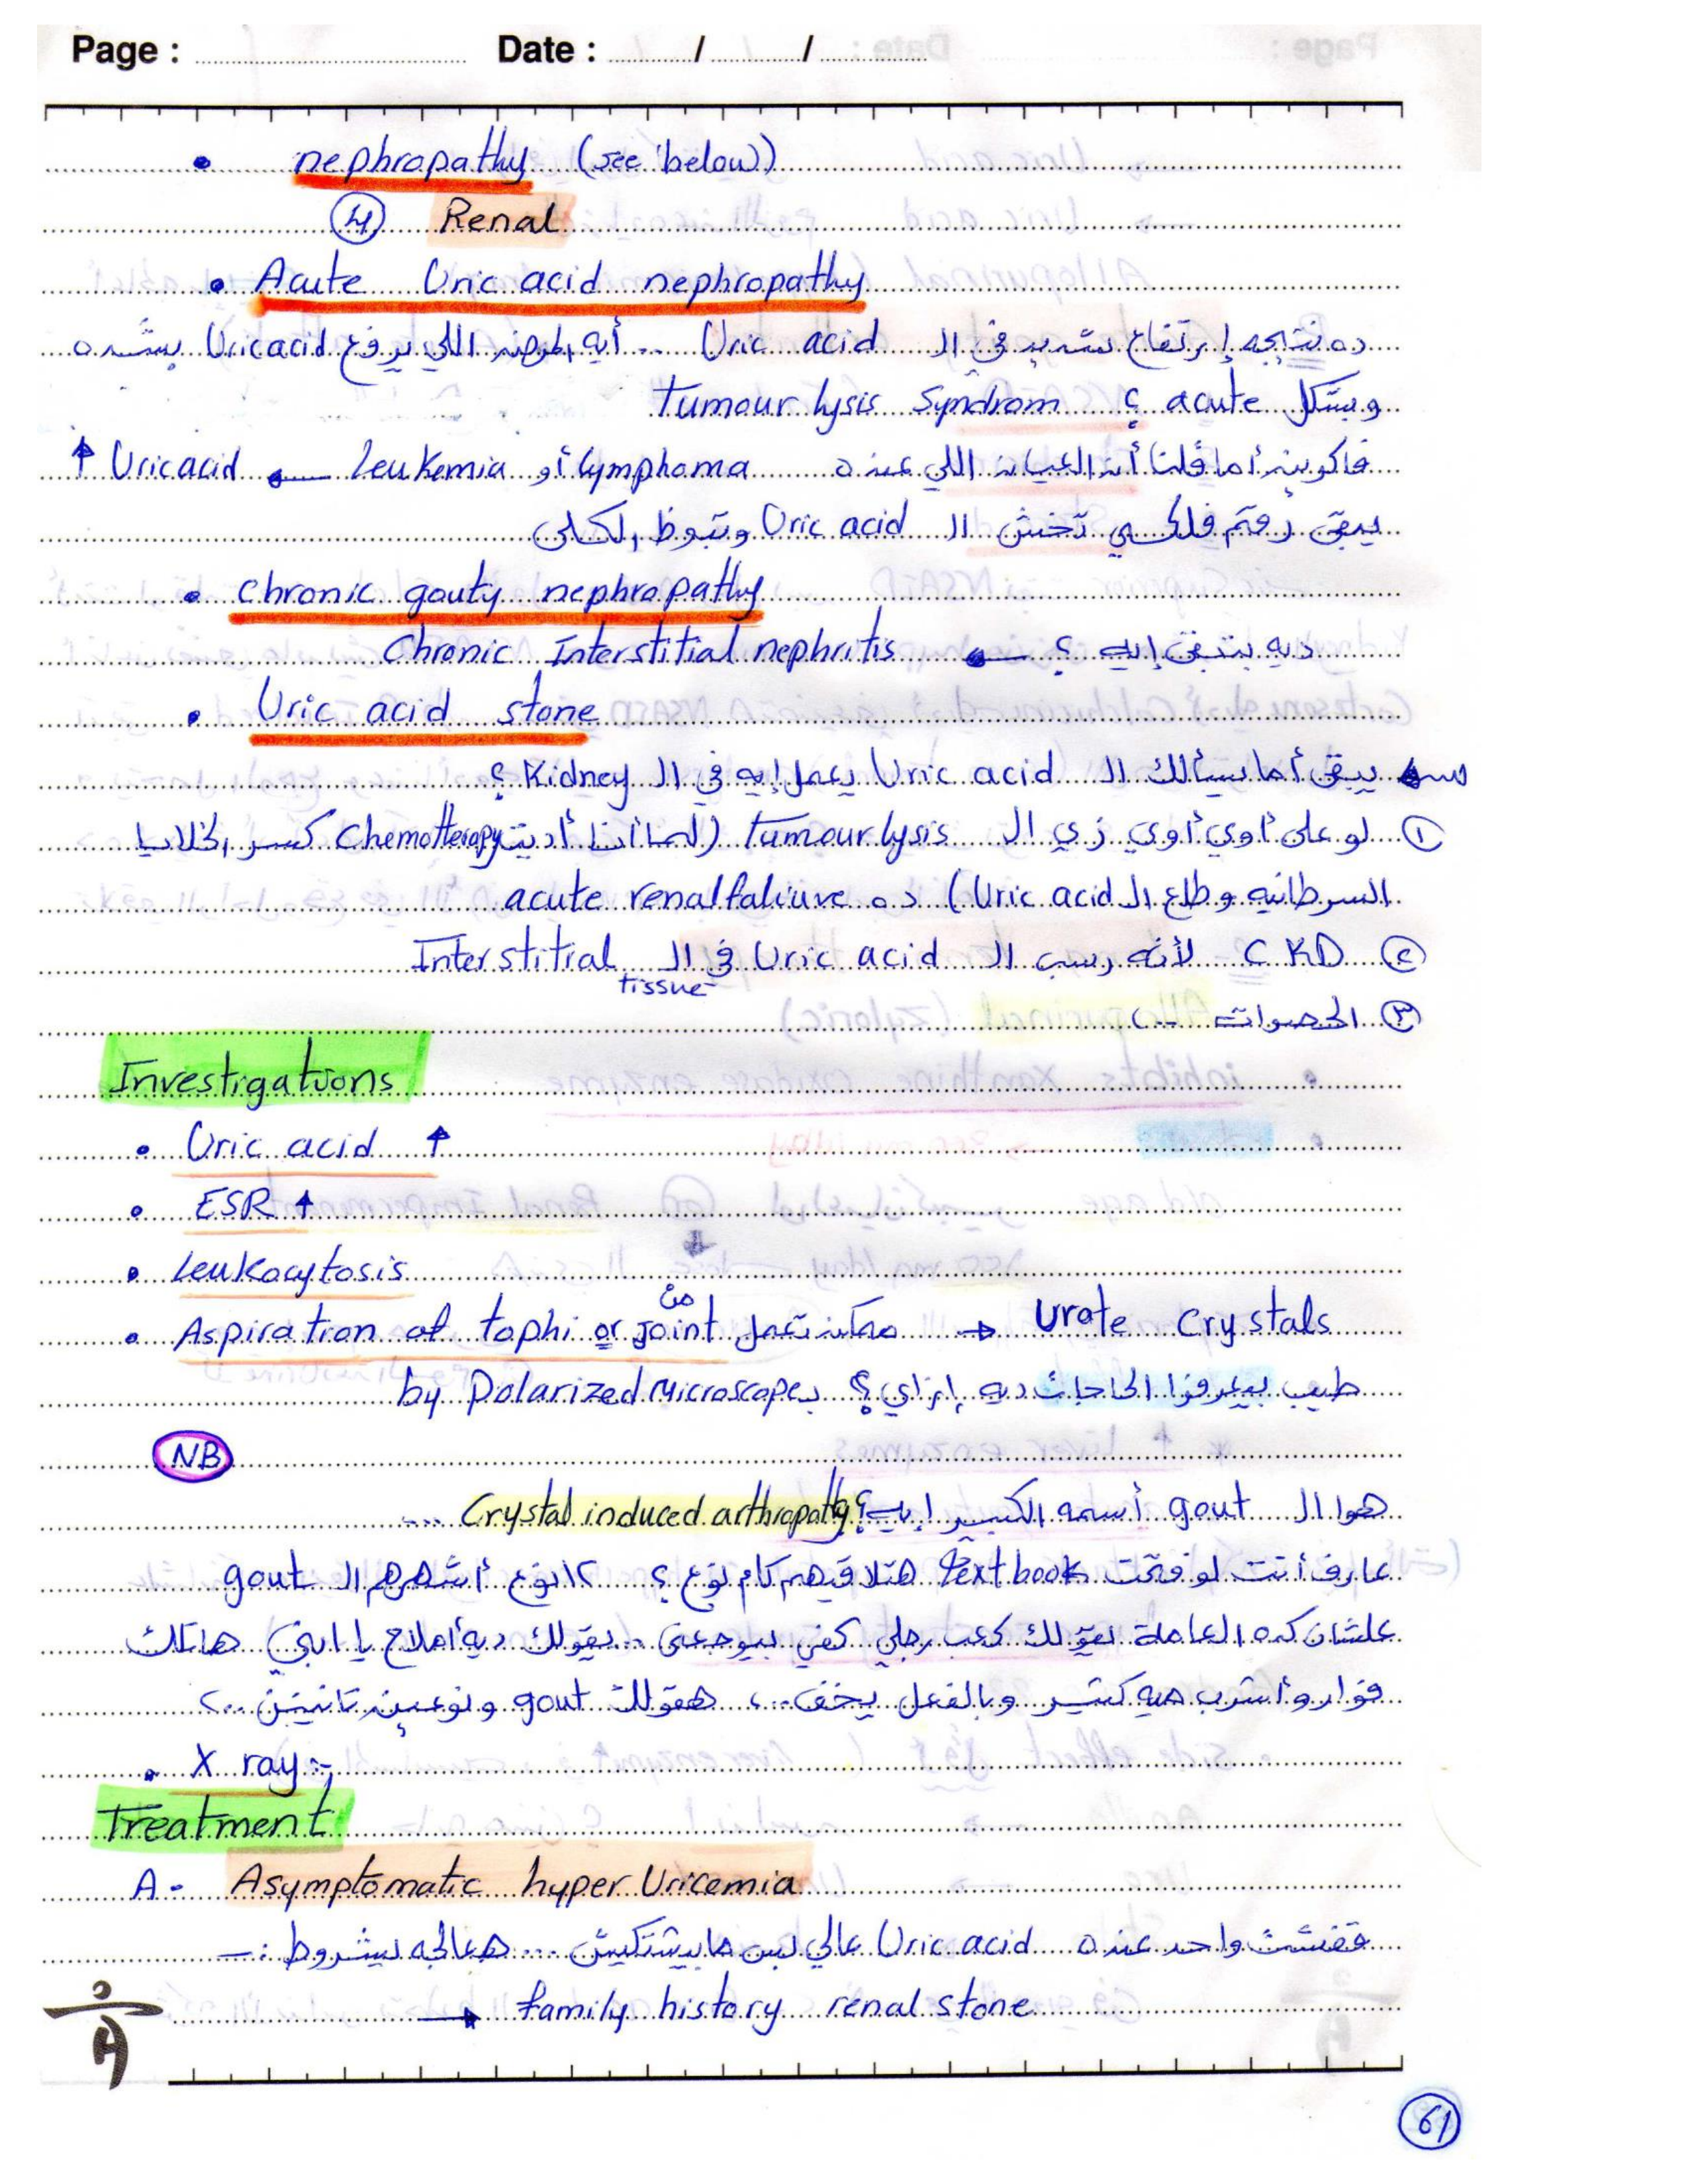 Page : Date : / /
• nephropathy (see below)
④ Renal
• Acute Uric acid nephropathy
ده نتيجه إرتفاع شديد في ال Uric acid .. أيه المرض اللي يرفع Uric acid بشده
وبشكل acute ؟ Tumour lysis Syndrom
فاكرين أما قلنا أن العيان اللي عنده lymphoma أو Leukemia ← Uric acid ↑
يبقى تخش ال Uric acid وتبوظ الكلى
• Chronic gouty nephropathy
ديه بتبقى إيه ؟ ← Chronic Interstitial nephritis
• Uric acid stone
س يبقى أما يسألك ال Uric acid يعمل إيه في ال Kidney ؟
① لو على أوي أوي زي ال Tumour lysis (لما أنا أديت Chemotherapy كسر الخلايا
السرطانيه وطلع ال Uric acid) ده acute renal faliure
② CKD لأنه رسب ال Uric acid في ال Interstitial
tissue
③ الحصوات ..
Investigations
• Uric acid ↑
• ESR ↑
• Leukocytosis
• Aspiration of tophi or joint ممكن تعمل من → Urate Crystals
طيب بيعرفوا الحاجات ديه إزاي ؟ ب by Polarized Microscope
NB
هوا ال gout أسمه الكبير إيه ؟ Crystal induced arthropathy ...
عارف أنت لو فتحت textbook هتلاقيهم كام نوع ؟ ٢٨ نوع أشهرهم ال gout
علشان كده العاملة تقولك كعب رجلي كفي بيوجعني .. يقولك ديه أملاح يا ابني هاتلك
فوار وأشرب ميه كتير وبالفعل يخف ... هقولك gout ونوعين تانيين ..
• X ray :-
Treatment
A - Asymptomatic hyper Uricemia
قفشت واحد عنده Uric acid عالي بس مابيشتكيش ... هعالجه بشروط :-
→ family history renal stone
61